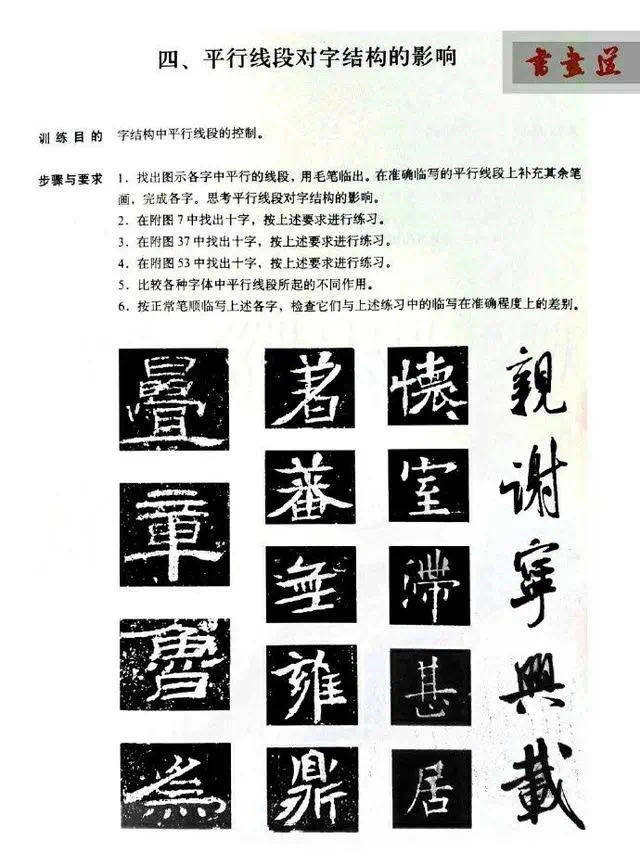 四、平行线段对字结构的影响
書畫道
训练目的 字结构中平行线段的控制。
步骤与要求 1．找出图示各字中平行的线段，用毛笔临出。在准确临写的平行线段上补充其余笔
画，完成各字。思考平行线段对字结构的影响。
2．在附图 7 中找出十字，按上述要求进行练习。
3．在附图 37 中找出十字，按上述要求进行练习。
4．在附图 53 中找出十字，按上述要求进行练习。
5．比较各种字体中平行线段所起的不同作用。
6．按正常笔顺临写上述各字，检查它们与上述练习中的临写在准确程度上的差别。
疊章魯為
著蕃無雍鼎
懷室滯甚居
親謝寧興載